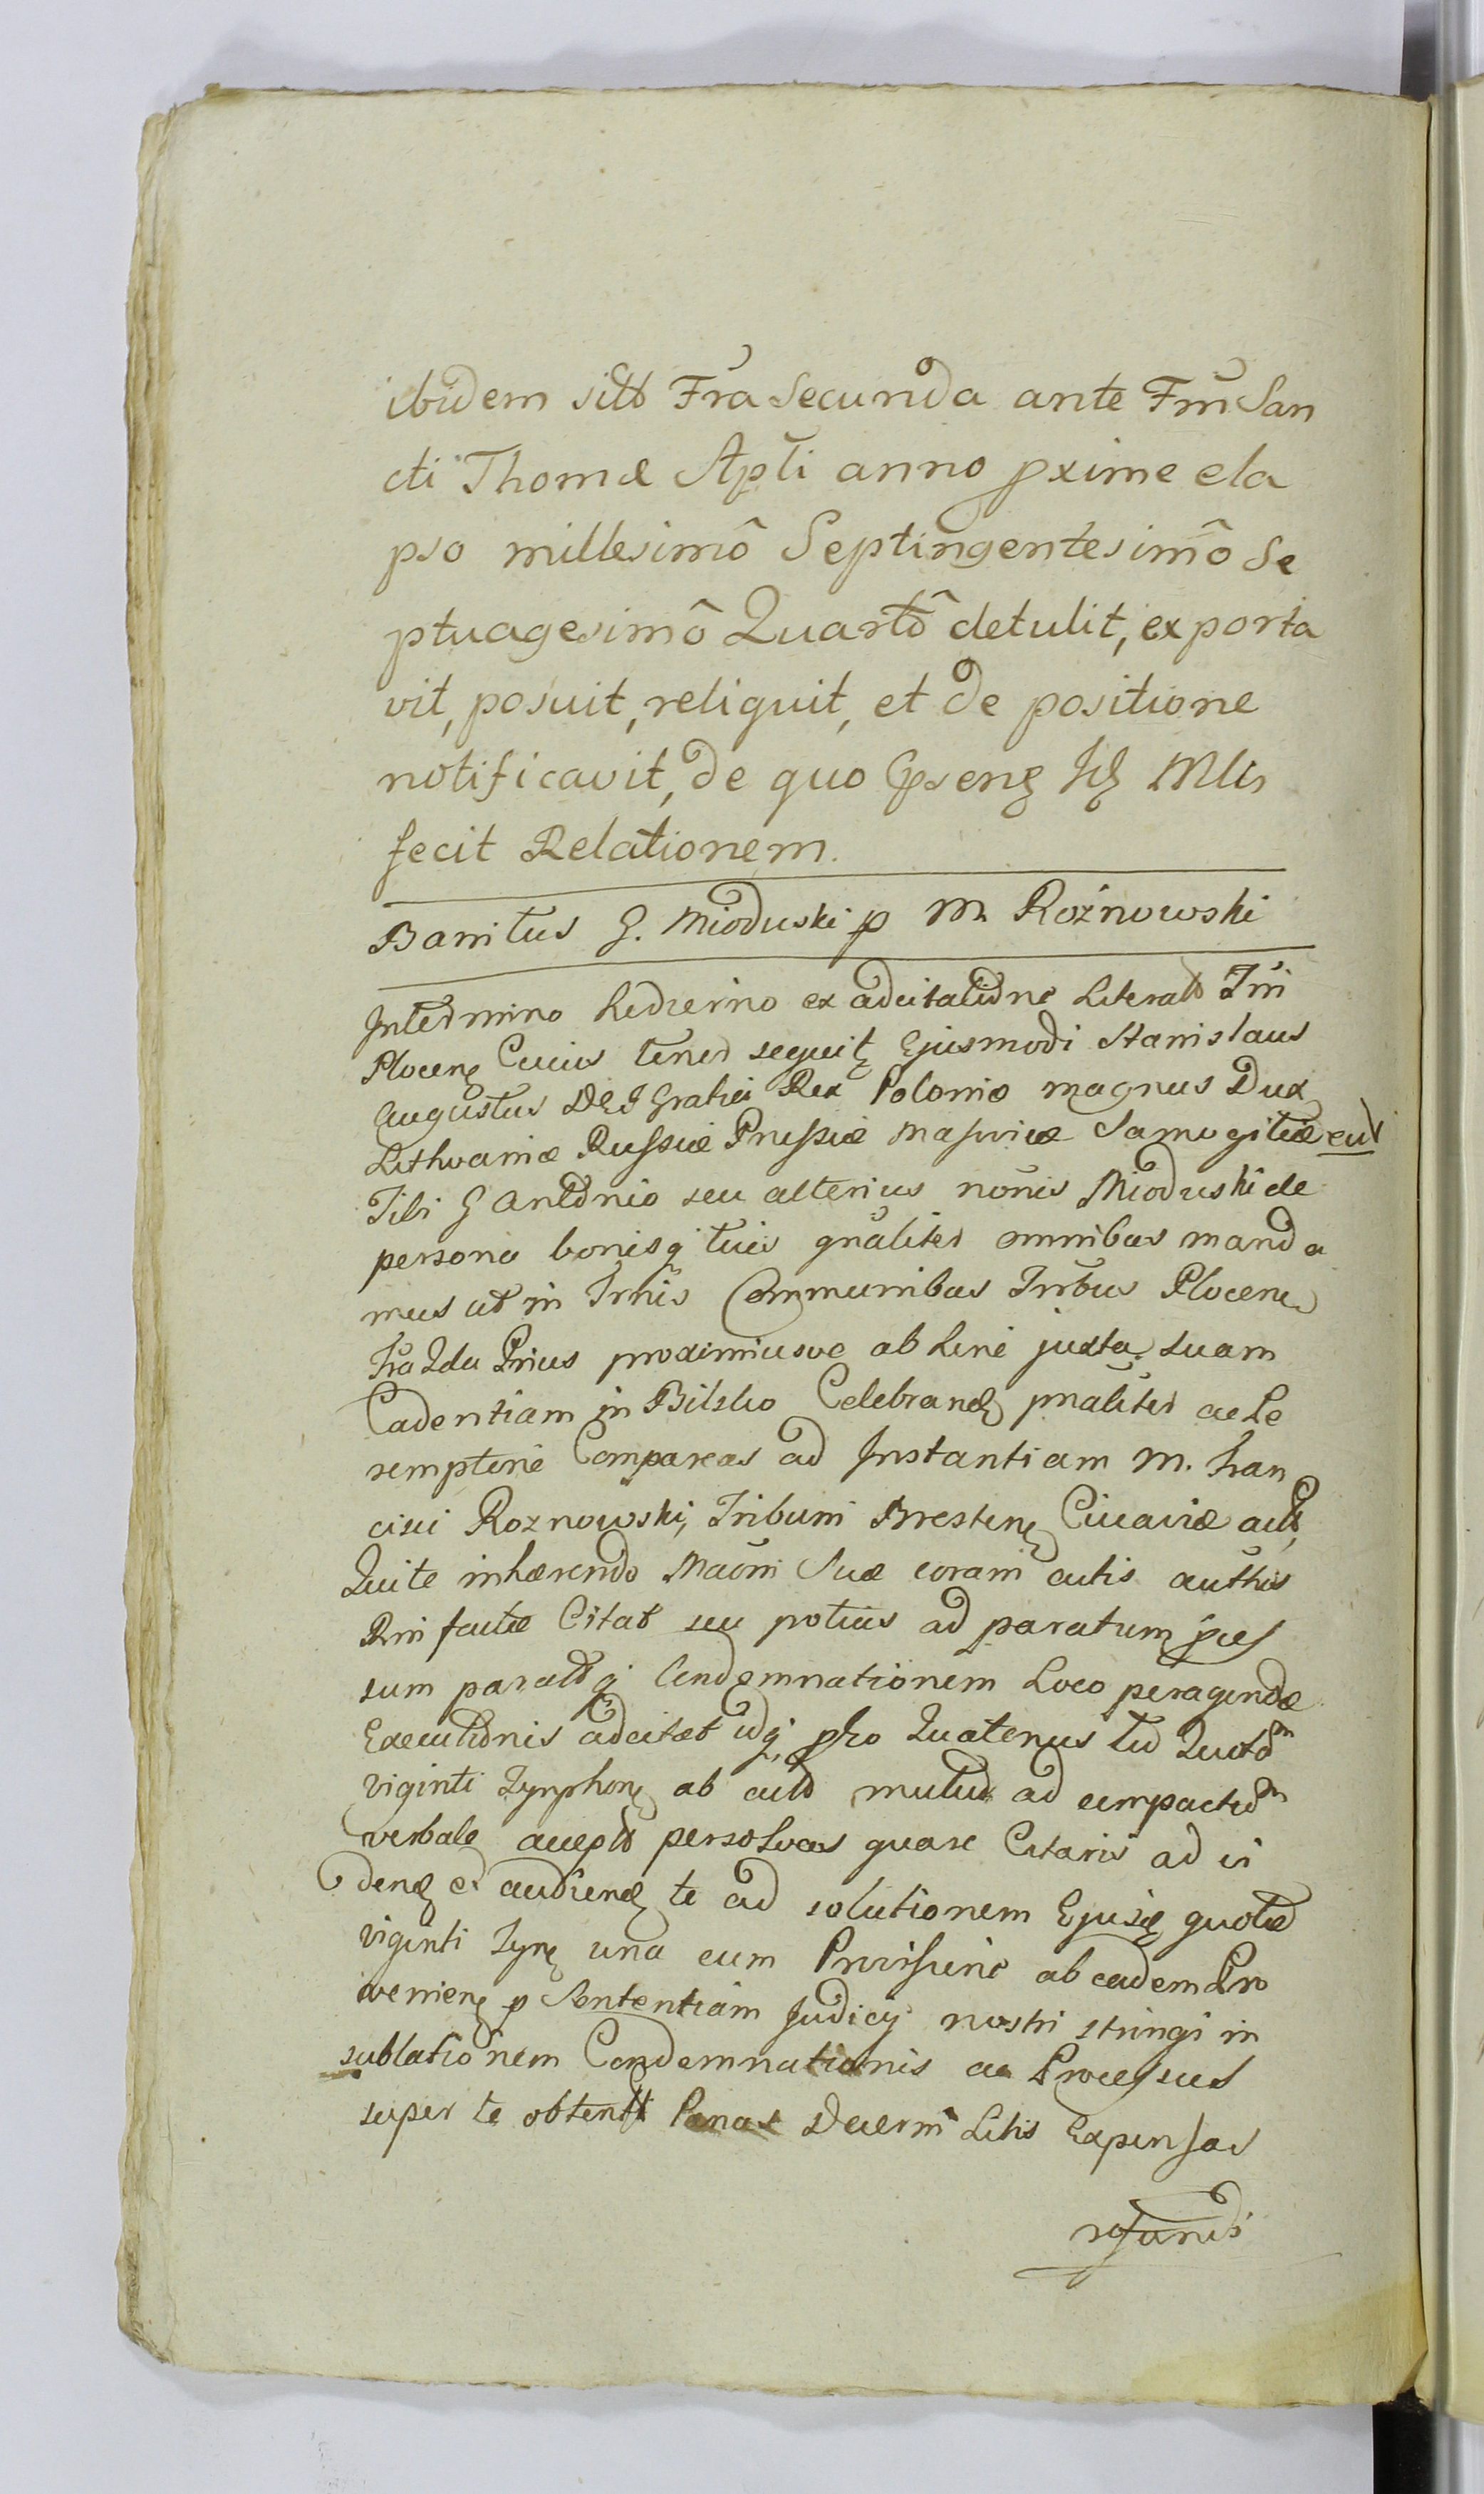 ibidem sitts Fra Secunda ante Fm̃ San
cti Thomæ Apl̃i anno pxime ela
pso millesimô Septingentesimô Se
ptuagesimô Quartô detulit, exporta
vit, posuit, reliquit, et de positione
notificavit, de quo Mlis
fecit Relationem.
Banitus G. Mioduski p M. Rożnowski
In termino hodierno ex adcitatione Literali Tri
Plocen Cuius tenor sequit Ejusmodi Stanislaus
Augustus DEI Gratia Rex Poloniæ magnus Dux
Lithvaniæ Russiæ Prussiæ Masoviæ Samogitiæ
Tibi G Antonio seu alterius nõnis Mioduski de
persona bonisq tuis gnãliter omnibus manda
mus ut in Trnis Communibus Tribus Plocen
Fra 2da Prius proximiusve ab hinc juxta suam
Cadentiam in Bilsko Celebrand pnãliter ac Pe
remptorie Compareas ad Instantiam M. Fran
cisci Roznowski, Tribuni Bresten Cuiaviæ acts
Qui te inhærendo Maõni Suæ coram actis authis
Rni factæ Citat seu potius ad paratum pces
sum paratq Condemnationem Loco peragendæ
Executionis adcitat idq pto Quatenus tu Quotam
viginti Tynphon ab acto mutuo ad compactum
verbale accepto persolvas quare Citaris ad vi
dend et audiend te ad solutionem Ejusd quotæ
viginti Tynf una cum Provisione ab eadem Pro
venien p Sententiam Judicij nostri stringi in
sublationem Condemnationis ac Processus
super te obtent Pænas Decerni Litis Expensas
refundi